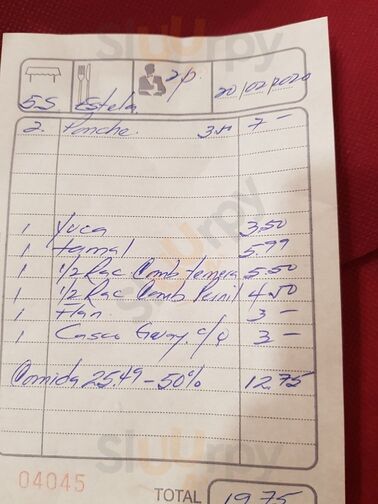 SlUUrpy
5S. Estela 2p. 20/02/2020
2. Ponche. 3.50 7 —
1 Yuca 3,50
1 Tamal 5.99
1 1/2 Rac Comb ternera 5.50
1 1/2 Rac Comb Pernil 4.50
1 Flan. 3 —
1 Casco Guay. c/q 3 —
Comida 25.49 - 50% 12.75
04045 TOTAL 19.75